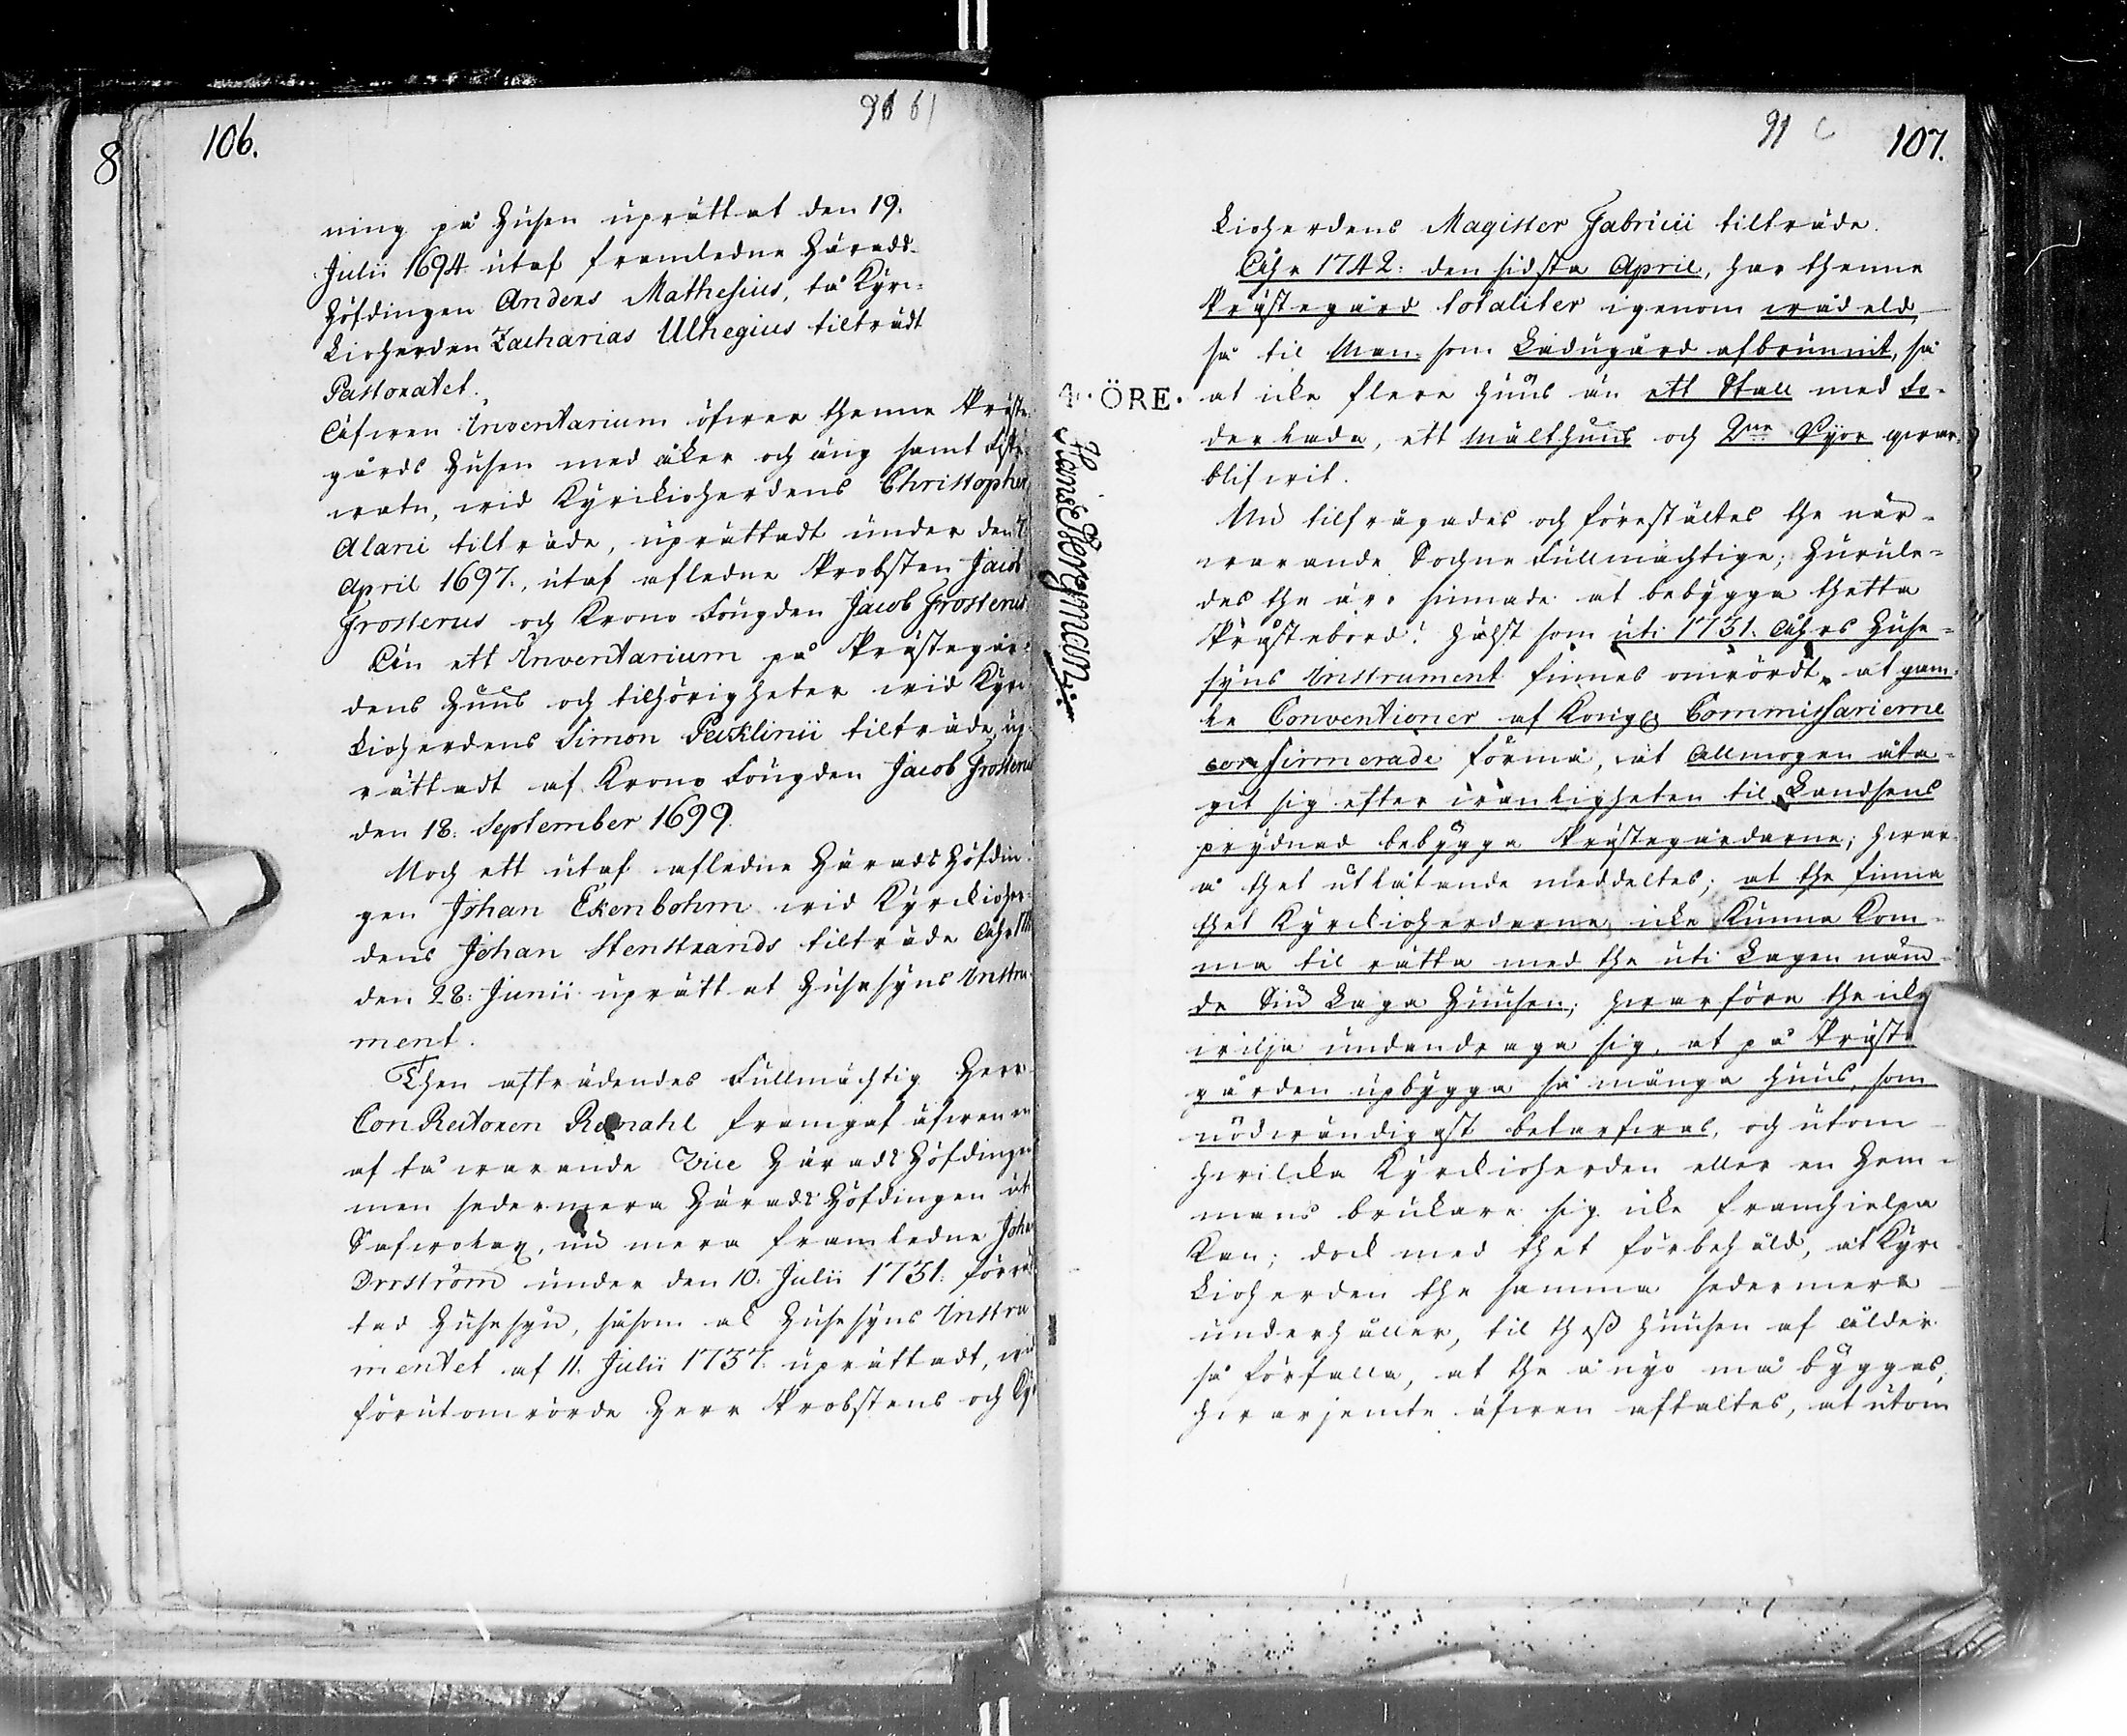 106.
90 61
ning på Husen uprättat den 19.
Julii 1694 utaf framledne Härads-
Höfdingen Anders Mathesius, tå Kyrc-
kioherden Zacharias Ulhegius tilträdt
Pastoratet.
Äfwen Inventarium öfwer thenne Präste-
gårds Husen med åker och äng samt Fiske-
watn, wid Kyrckioherdens Christopher
Alani tilträde, uprättadt under den
April 1697., utaf afledne Probsten Jacob
Frosterus och Krono Fougden Jacob Frosterus
Än ett Inventarium på Prästegår-
dens Huus och tilhörigheter wid Kyrc-
kioherdens Simon Pecklinii tilträde, up-
rättadt af Krono Fougden Jacob Frosterus
den 18. September 1699.
Noch ett utaf afledne Härads Höfdin-
gen Johan Ekenbohm wid Kyrckioher-
dens Johan Stenstrands tilträde Åhr
den 28. Junii uprättat Husesyns Instru-
ment.
Then afträdendes Fullmächtig Herr
Con Rectoren Renahl framgaf äfwen en
af tå warande Vice Härads Höfdingen
men sedermera Härads Höfdingen ut
Safwolax, nu mera framledne Johan
Orrström under den 10. Julii 1731. förrät-
tad Husesyn, såsom al Husesyns Instru-
mentet af 11. Julii 1737. uprättadt, wid
förutomrörde Herr Probstens och Kyrc-
8
91
107.
kioherdens Magister Fabricii tilträde.
Åhr 1742. den sidsta April, har thenne
Prästegård totaliter igenom wådeld,
så til Man- som Ladugård afbrunnit, så
4. ÖRE.
at icke flere huus än ett Stall med Fo-
derlada, ett Mälthuus och 2ne Ryor qwar-
blifwit.
Nu tilfrågades och förestältes the när-
warande Sochne Fullmächtige; Hurule-
des the äro sinnade at bebygga thetta
Prästebord? hälst som uti 1731. Åhrs Huse-
syns Instrument finnes omrördt, at gam-
le Conventioner af Konigl. Commissarierne
confirmerade förmå, at Allmogen åta-
git sig efter wanligheten til Landsens
prydnad bebygga Prästegårdarne; hwar-
å thet utlåtande meddeltes; at the finna
thet Kyrckioherdarne icke kunna kom-
ma til rätta med the uti Lagen näm-
de Siu Laga Huusen; hwarföre the icke
wilja undandraga sig, at på Präste-
gården upbygga så många huus, som
nödwändigast betarfwas, och utom
hwilcka Kyrckioherden eller en Hem-
mans brukare sig icke framhielpa
kan; dock med thet förbehåld, at Kyrc-
kioherden the samma sedermera
underhåller, til theß huusen af ålder
så förfalla, at the å nyo må byggas,
hwarjemte äfwen aftaltes, at utom
Hans Bergman.